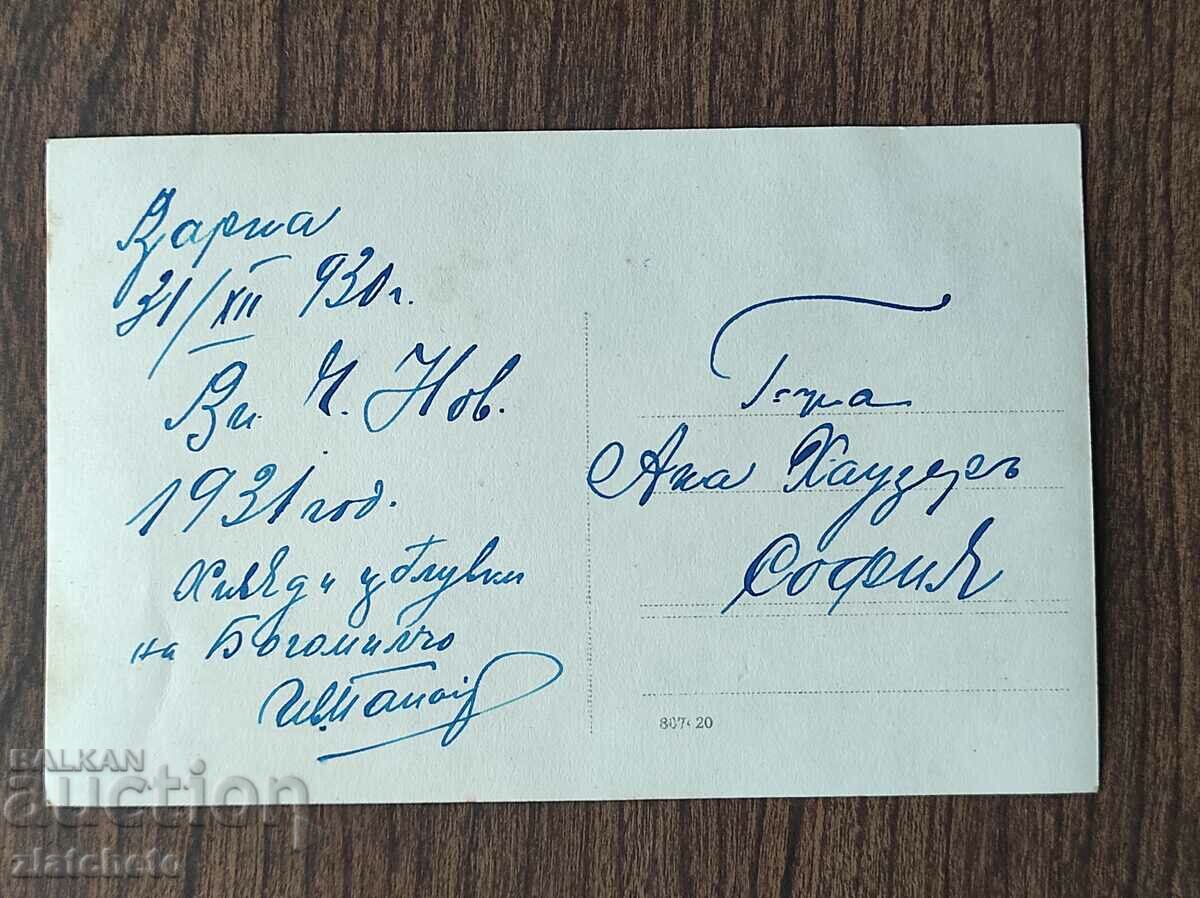 Варна
31/XII 930 г.
Вп. Ч. Нов.
1931 год.
Хиляди целувки
на Богомилчо
Г-жа
Ана Хаузеръ
София
807/20
BALKAN
auction
zlatcheto